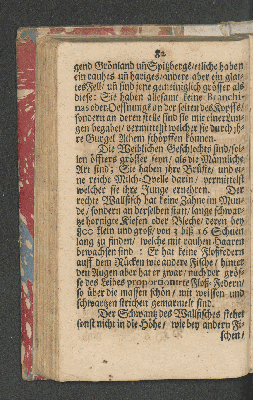 82
gend Grönland uñ Spitzbergē/etliche haben
ein rauhes uñ hariges/andere aber ein glat-
tes Fell/ uñ sind jene gemeiniglich grösser als
diese: Sie haben allesamt keine Branchi-
nas oder Oeffnungē an der seiten des Kopffs/
sondern an deren stelle sind sie mit einer Lun-
gen begabet/ vermittelst welcher sie durch jh-
re Gurgel Athem schöpffen können.
Die Weiblichen Geschlechts sind/sol-
len öffters grösser seyn/als die Männliche
Art sind; Sie haben jhre Brüste/ und ei-
ne reiche Milch-Quelle darin/ vermittelst
welcher sie ihre Junge ernehren. Der
rechte Wallfisch hat keine Zähne im Mun-
de/ sondern an derselben statt/ lange schwar-
tze hornige Kiefen oder Bleche/ deren bey
800 klein und groß/ von 3 biß 16 Schuen
lang zu finden/ welche mit rauhen Haaren
bewachsen sind: Er hat keine Floßfedern
auff dem Rücken wie andere Fische/ hinter
den Augen aber hat er zwar/ nach der grös-
se des Leibes proportionirte Floß-Federn/
so über die massen schön/ mit weissen und
schwartzen strichen gemarmelt sind.
Der Schwantz des Wallfisches stehet
sonst nicht in die Höhe/ wie bey andern Fi-
schen/